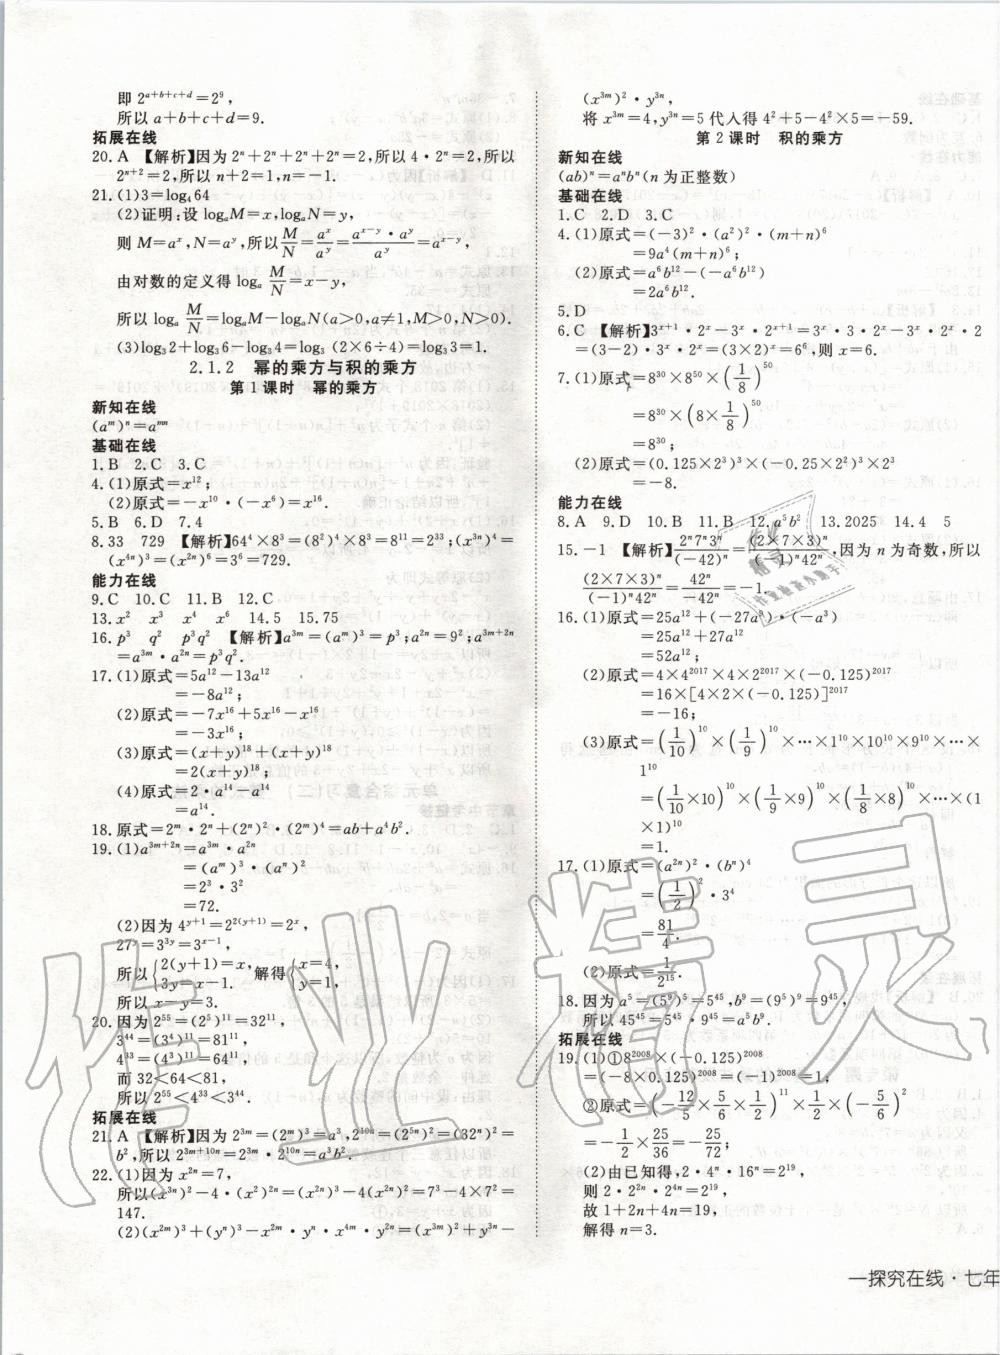 即 2^{a+b+c+d}=2^9,
所以 a+b+c+d=9.
拓展在线
20. A 【解析】因为 2^n+2^n+2^n+2^n=2,所以 4·2^n=2,
2^{n+2}=2,所以 n+2=1,n=-1.
21. (1)3=log_4 64
(2)证明:设 log_a M=x,log_a N=y,
则 M=a^x,N=a^y,所以 M/N=a^x/a^y=(a^{x-y}·a^y)/a^y=a^{x-y},
由对数的定义得 log_a M/N=x-y,
所以 log_a M/N=log_a M-log_a N(a>0,a≠1,M>0,N>0).
(3)log_3 2+log_3 6-log_3 4=log_3 (2×6÷4)=log_3 3=1.
2.1.2 幂的乘方与积的乘方
第 1 课时 幂的乘方
新知在线
(a^m)^n=a^{mn}
基础在线
1. B 2. C 3. C
4. (1)原式=x^{12};
(2)原式=-x^{10}·(-x^6)=x^{16}.
5. B 6. D 7. 4
8. 33 729 【解析】64^4×8^3=(8^2)^4×8^3=8^{11}=2^{33};(x^{3n})^4=
(x^{4n})^3=(x^{2n})^6=3^6=729.
能力在线
9. C 10. C 11. B 12. C
13. x^2 x^3 x^4 x^6 14. 5 15. 75
16. p^3 q^2 p^3q^2 【解析】a^{3m}=(a^m)^3=p^3;a^{2n}=9^2;a^{3m+2n}
=a^{3m}·a^{2n}=p^3q^2.
17. (1)原式=5a^{12}-13a^{12}
=-8a^{12};
(2)原式=-7x^{16}+5x^{16}-x^{16}
=-3x^{16};
(3)原式=(x+y)^{18}+(x+y)^{18}
=2(x+y)^{18};
(4)原式=2·a^{14}-a^{14}
=a^{14}.
18. 原式=2^m·2^n+(2^n)^2·(2^m)^4=ab+a^4b^2.
19. (1)a^{3m+2n}=a^{3m}·a^{2n}
=(a^m)^3·(a^n)^2
=2^3·3^2
=72.
(2)因为 4^{y+1}=2^{2(y+1)}=2^x,
27^y=3^{3y}=3^{x-1},
所以{2(y+1)=x, 3y=x-1. 解得{x=4, y=1,
所以 x-y=3.
20. 因为 2^{55}=(2^5)^{11}=32^{11},
3^{44}=(3^4)^{11}=81^{11},
4^{33}=(4^3)^{11}=64^{11},
而 32<64<81,
所以 2^{55}<4^{33}<3^{44}.
拓展在线
21. A 【解析】因为 2^{3m}=(2^m)^3=a^3,2^{10n}=(2^{5n})^2=(32^n)^2=
b^2,所以 2^{3m+10n}=2^{3m}·2^{10n}=a^3b^2.
22. (1)因为 x^{2n}=7,
所以(x^{3n})^2-4·(x^2)^{2n}=(x^{2n})^3-4(x^{2n})^2=7^3-4×7^2=
147.
(2)(x^{2m})^3+(y^n)^3-x^{2m}·y^n·x^{4m}·y^{2n}=(x^{3m})^2+y^{3n}-
(x^{3m})^2·y^{3n},
将 x^{3m}=4,y^{3n}=5 代人得 4^2+5-4^2×5=-59.
第 2 课时 积的乘方
新知在线
(ab)^n=a^nb^n(n 为正整数)
基础在线
1. C 2. D 3. C
4. (1)原式=(-3)^2·(a^2)^2·(m+n)^6
=9a^4(m+n)^6;
(2)原式=a^6b^{12}-(-a^6b^{12})
=2a^6b^{12}.
5. D
6. C 【解析】3^{x+1}·2^x-3^x·2^{x+1}=3^x·3·2^x-3^x·2^x·2
=(3-2)·3^x·2^x=(3×2)^x=6^6,则 x=6.
7. (1)原式=8^{30}×8^{50}×(1/8)^{50}
=8^{30}×(8×1/8)^{50}
=8^{30};
(2)原式=(0.125×2^3)^3×(-0.25×2^2)^3×2^3
=-8.
能力在线
8. A 9. D 10. B 11. B 12. a^5b^2 13. 2025 14. 4 5
15. -1 【解析】2^n7^n3^n/(-42)^n=(2×7×3)^n/(-1)^n42^n,因为 n 为奇数,所以
(2×7×3)^n/(-1)^n42^n=42^n/-42^n=-1.
16. (1)原式=25a^{12}+(-27a^9)·(-a^3)
=25a^{12}+27a^{12}
=52a^{12};
(2)原式=4×4^{2017}×4×2^{2017}×(-0.125)^{2017}
=16×[4×2×(-0.125)]^{2017}
=-16;
(3)原式=(1/10)^{10}×(1/9)^{10}×…×1^{10}×10^{10}×9^{10}×…×
1^{10}
=(1/10×10)^{10}×(1/9×9)^{10}×(1/8×8)^{10}×…×(1
×1)^{10}
=1.
17. (1)原式=(a^{2n})^2·(b^n)^4
=(1/2)^2·3^4
=81/4.
(2)原式=1/2^{15}.
18. 因为 a^5=(5^9)^5=5^{45},b^9=(9^5)^9=9^{45},
所以 45^{45}=5^{45}·9^{45}=a^5b^9.
拓展在线
19. (1)①8^{2008}×(-0.125)^{2008}
=(-8×0.125)^{2008}=(-1)^{2008}=1;
②原式=(-12/5×5/6×1/2)^{11}×1/2×(-5/6)^2
=-1/2×25/36=-25/72;
(2)由已知得,2·4^n·16^n=2^{19},
则 2·2^{2n}·2^{4n}=2^{19},
故 1+2n+4n=19,
解得 n=3.
一探究在线·七年
作业精灵